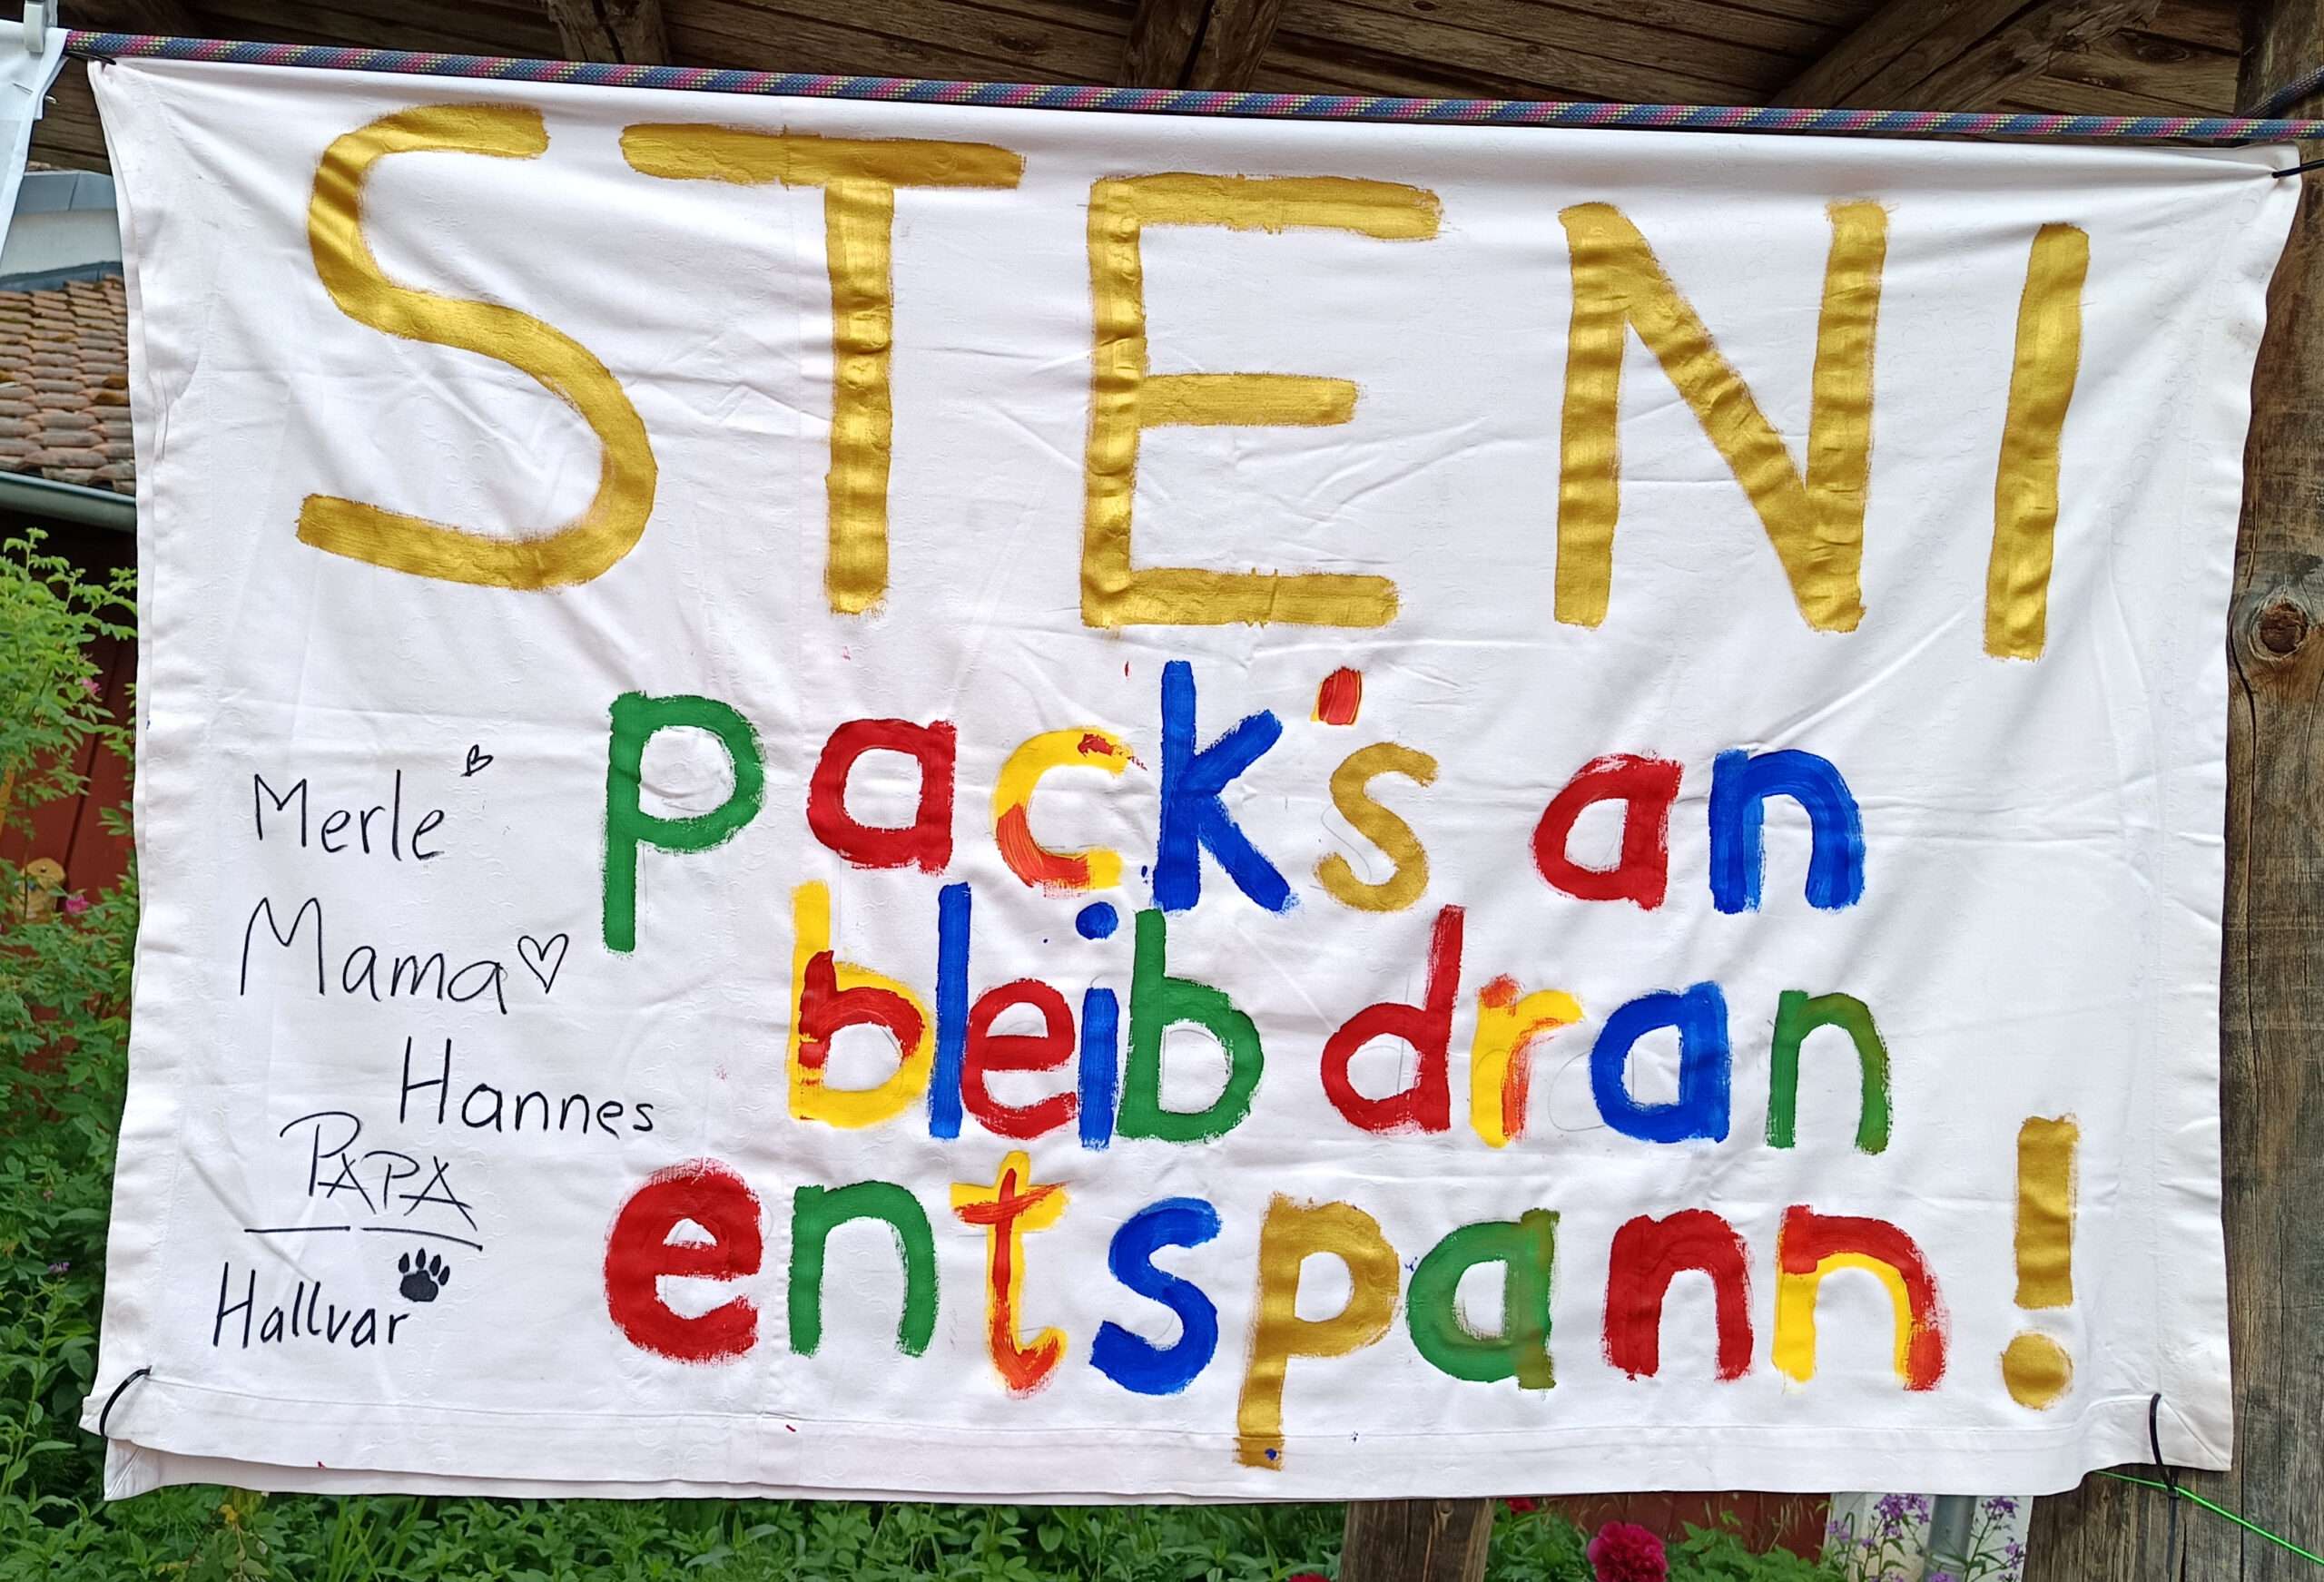 STENI
pack's an
bleib dran
entspann!
Merle
Mama
Hannes
PAPA
Hallvar